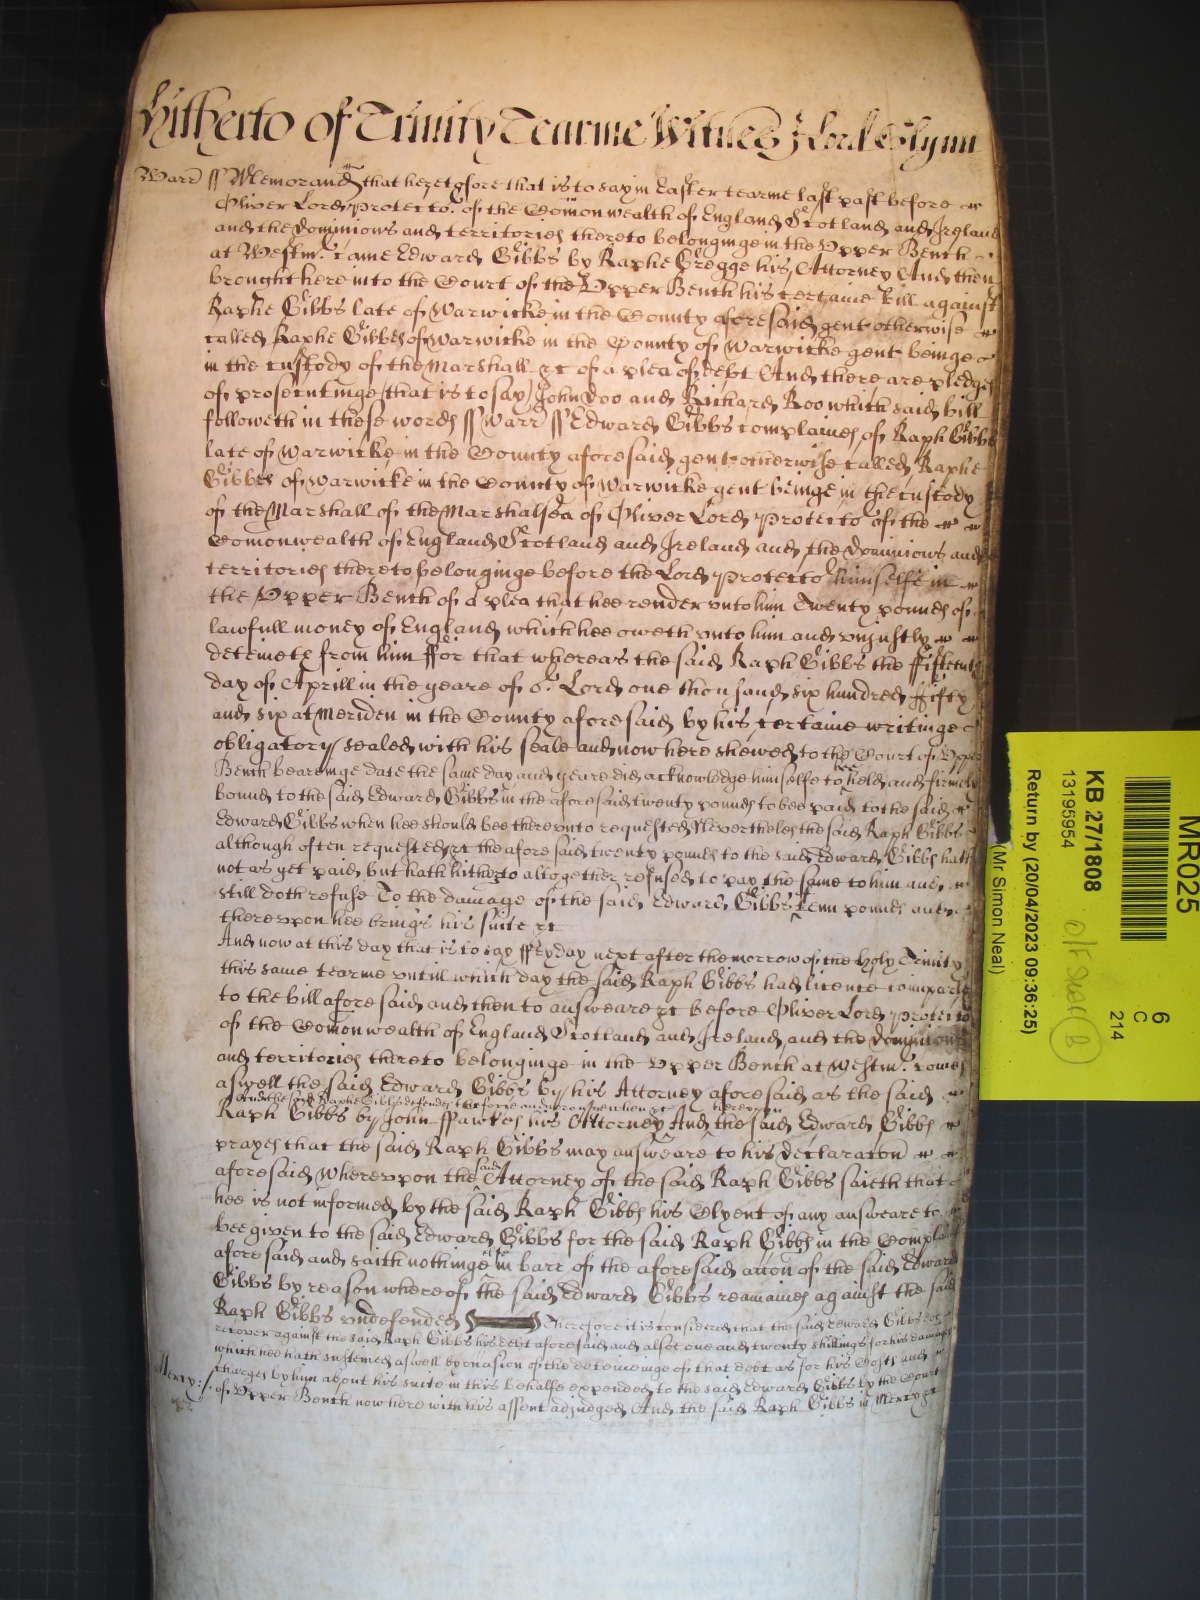 Hitherto of Trinity Tearme Witnes
Warr ss Memorand that heretofore that is to say in Easter tearme last past before
Oliver Lord Protector of the Comonwealth of England Scotland and Ireland
and the Dominions and territories thereto belonginge in the Upper Bench
at Westm. Came Edward Gibbs by Raphe Gregge his Attorney And then
brought here into the Court of the Upper Bench his certaine bill against
Raphe Gibbs late of Warwicke in the County aforesaid gent otherwise
called Raphe Gibbes of Warwicke in the County of Warwicke gent beinge
in the custody of the Marshall &c of a plea of debt And there are pledges
of prosecutinge (that is to say) John Doo and Richard Roo which said bill
followeth in these words ss Warr ss Edward Gibbs complaines of Raph Gibbs
late of Warwicke in the County aforesaid gent otherwise called Raphe
Gibbes of Warwicke in the County of Warwicke gent beinge in the custody
of the Marshall of the Marshalsea of Oliver Lord Protector of the
Comonwealth of England Scotland and Ireland and the Dominions and
territories thereto belonginge before the Lord Protector himselfe in
the Upper Bench of a plea that hee render unto him Twenty pounds of
lawfull money of England which hee oweth unto him and uniustly
deteineth from him ffor that whereas the said Raph Gibbs the ffifteenth
day of Aprill in the yeare of or Lord one thousand six hundred fifty
and six at Meriden in the County aforesaid by his certaine writinge
obligatory sealed with his seale and now here shewed to the Court of Upper
Bench beareinge date the same day and yeare did acknowledge himselfe to bee held and firmely
bound to the said Edward Gibbs in the aforesaid twenty pounds to bee paid to the said
Edward Gibbs when hee should bee thereunto requested Neverthelesse the said Raph Gibbs
although often requested &c the aforesaid twenty pounds to the said Edward Gibbs hath
not as yet paid but hath hitherto altogether refused to pay the same to him and
still doth refuse To the damage of the said Edward Gibbs Tenn pounds and
thereupon hee brings his suite &c
And now at this day that is to say ffryday next after the morrow of the Holy Trinity
this same tearme untill which day the said Raph Gibbs had licence to imparle
to the bill aforesaid and then to answeare &c before Oliver Lord Protector
of the Comonwealth of England Scotland and Ireland and the Dominions
and territories thereto belonginge in the Upper Bench at Westm. comes
aswell the said Edward Gibbs by his Attorney aforesaid as the said
and the said Raphe Gibbs defends the force and iniury when &c hereupon
Raph Gibbs by John ffawkes his Attorney And the said Edward Gibbs
prayes that the said Raph Gibbs may answeare to his declaracon
aforesaid Whereupon the said Attorney of the said Raph Gibbs saieth that
hee is not informed by the said Raph Gibbs his Clyent of any answeare to
bee given to the said Edward Gibbs for the said Raph Gibbs in the Complaint
aforesaid and saith nothinge in barr of the aforesaid accon of the said Edward
Gibbs by reason whereof the said Edward Gibbs remaines against the said
Raph Gibbs undefended Therefore it is considered that the said Edward Gibbs doe
recover against the said Raph Gibbs his debt aforesaid and alsoe one and twenty shillings for his damages
which hee hath susteined aswell by occasion of the deteineinge of that debt as for his Costs and
charges by him about his suite in this behalfe expended to the said Edward Gibbs by the Court
Mercy: of Upper Bench now here with his assent adjudged And the said Raph Gibbs in Mercy &c
MR025
6
C
214
KB 27/1808
13195954
Return by (20/04/2023 09:36:25)
(Mr Simon Neal)